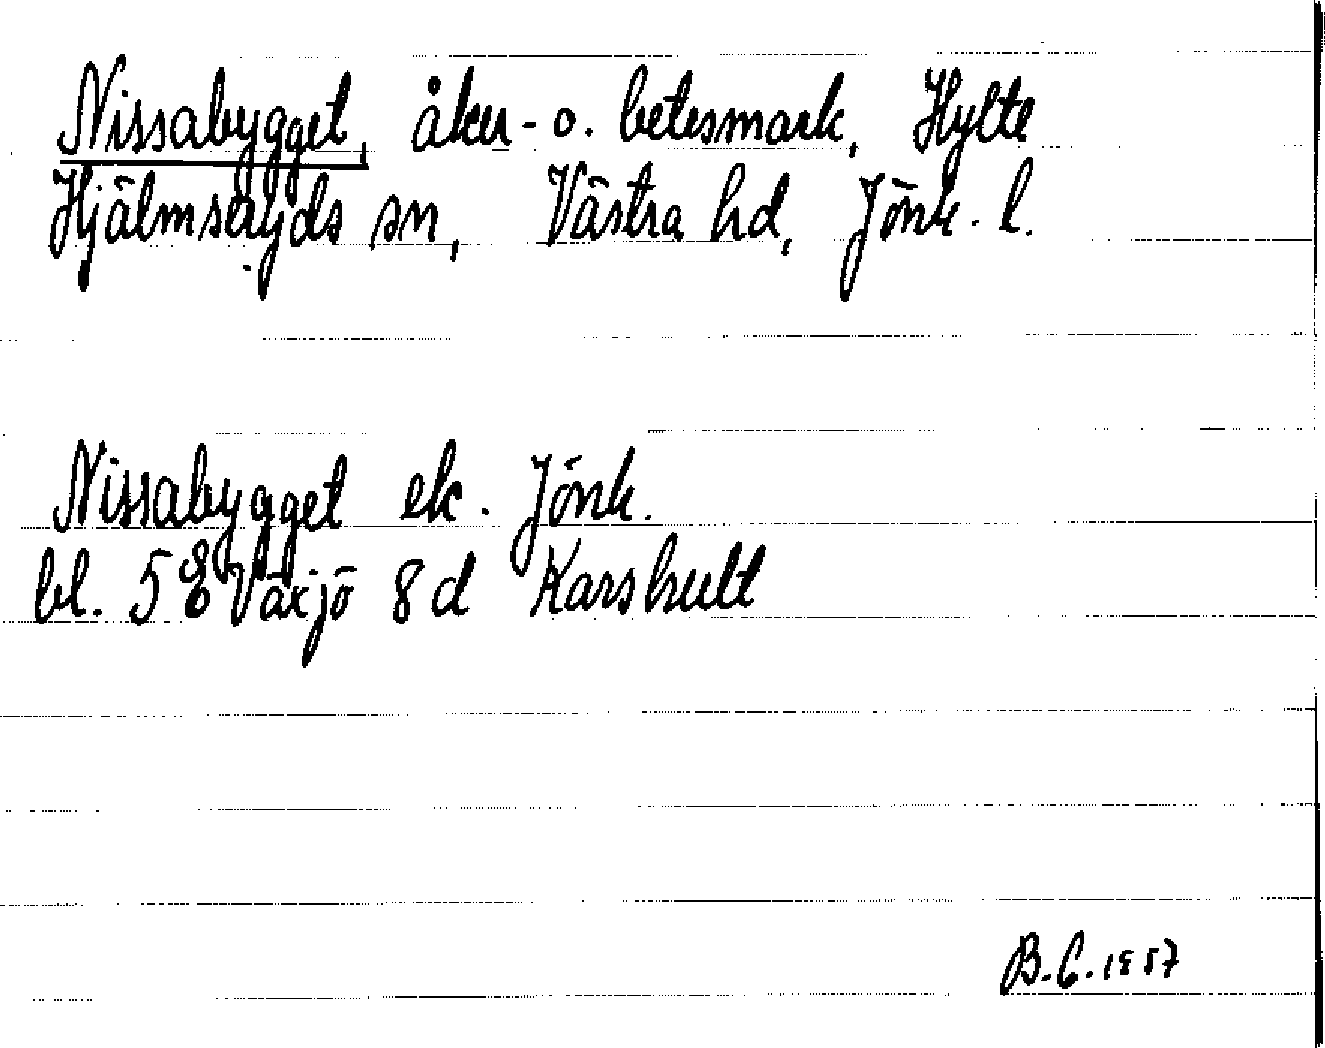 Nissabygget, åker- o. betesmark, Hylte
Hjälmseryds sn, Västra hd, Jönk. l.
Nissabygget ek. Jönk.
bl. 5 E Växjö 8 d Karshult
B.C. 1957